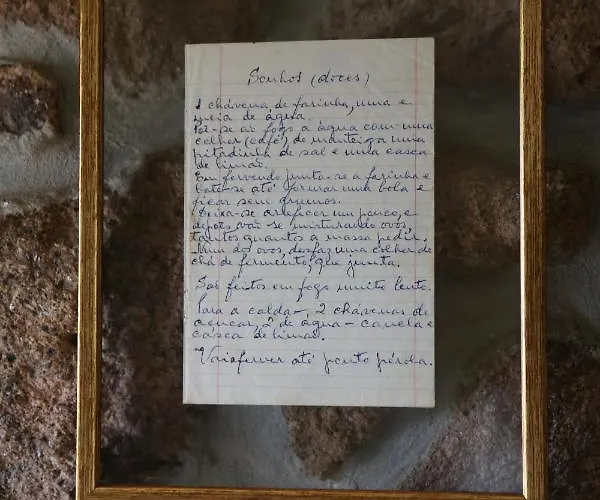 Sonhos (doces)
1 chávena, de farinha, uma e
meia de água.
Põe-se ao fogo a água com uma
colher (café) de manteiga uma
pitadinha de sal e uma casca
de limão.
Em fervendo junta-se a farinha e
bate-se até formar uma bola e
ficar sem grumos.
Deixa-se arrefecer um pouco, e
depois vai-se misturando ovos,
tantos quantos a massa pedir.
Num dos ovos, desfaz uma colher de
chá de fermento, que junta.
São feitos em fogo muito lento.
Para a calda -, 2 chávenas de
açucar, 2 de água - canela e
casca de limão.
Vai a ferver até ponto pérola.